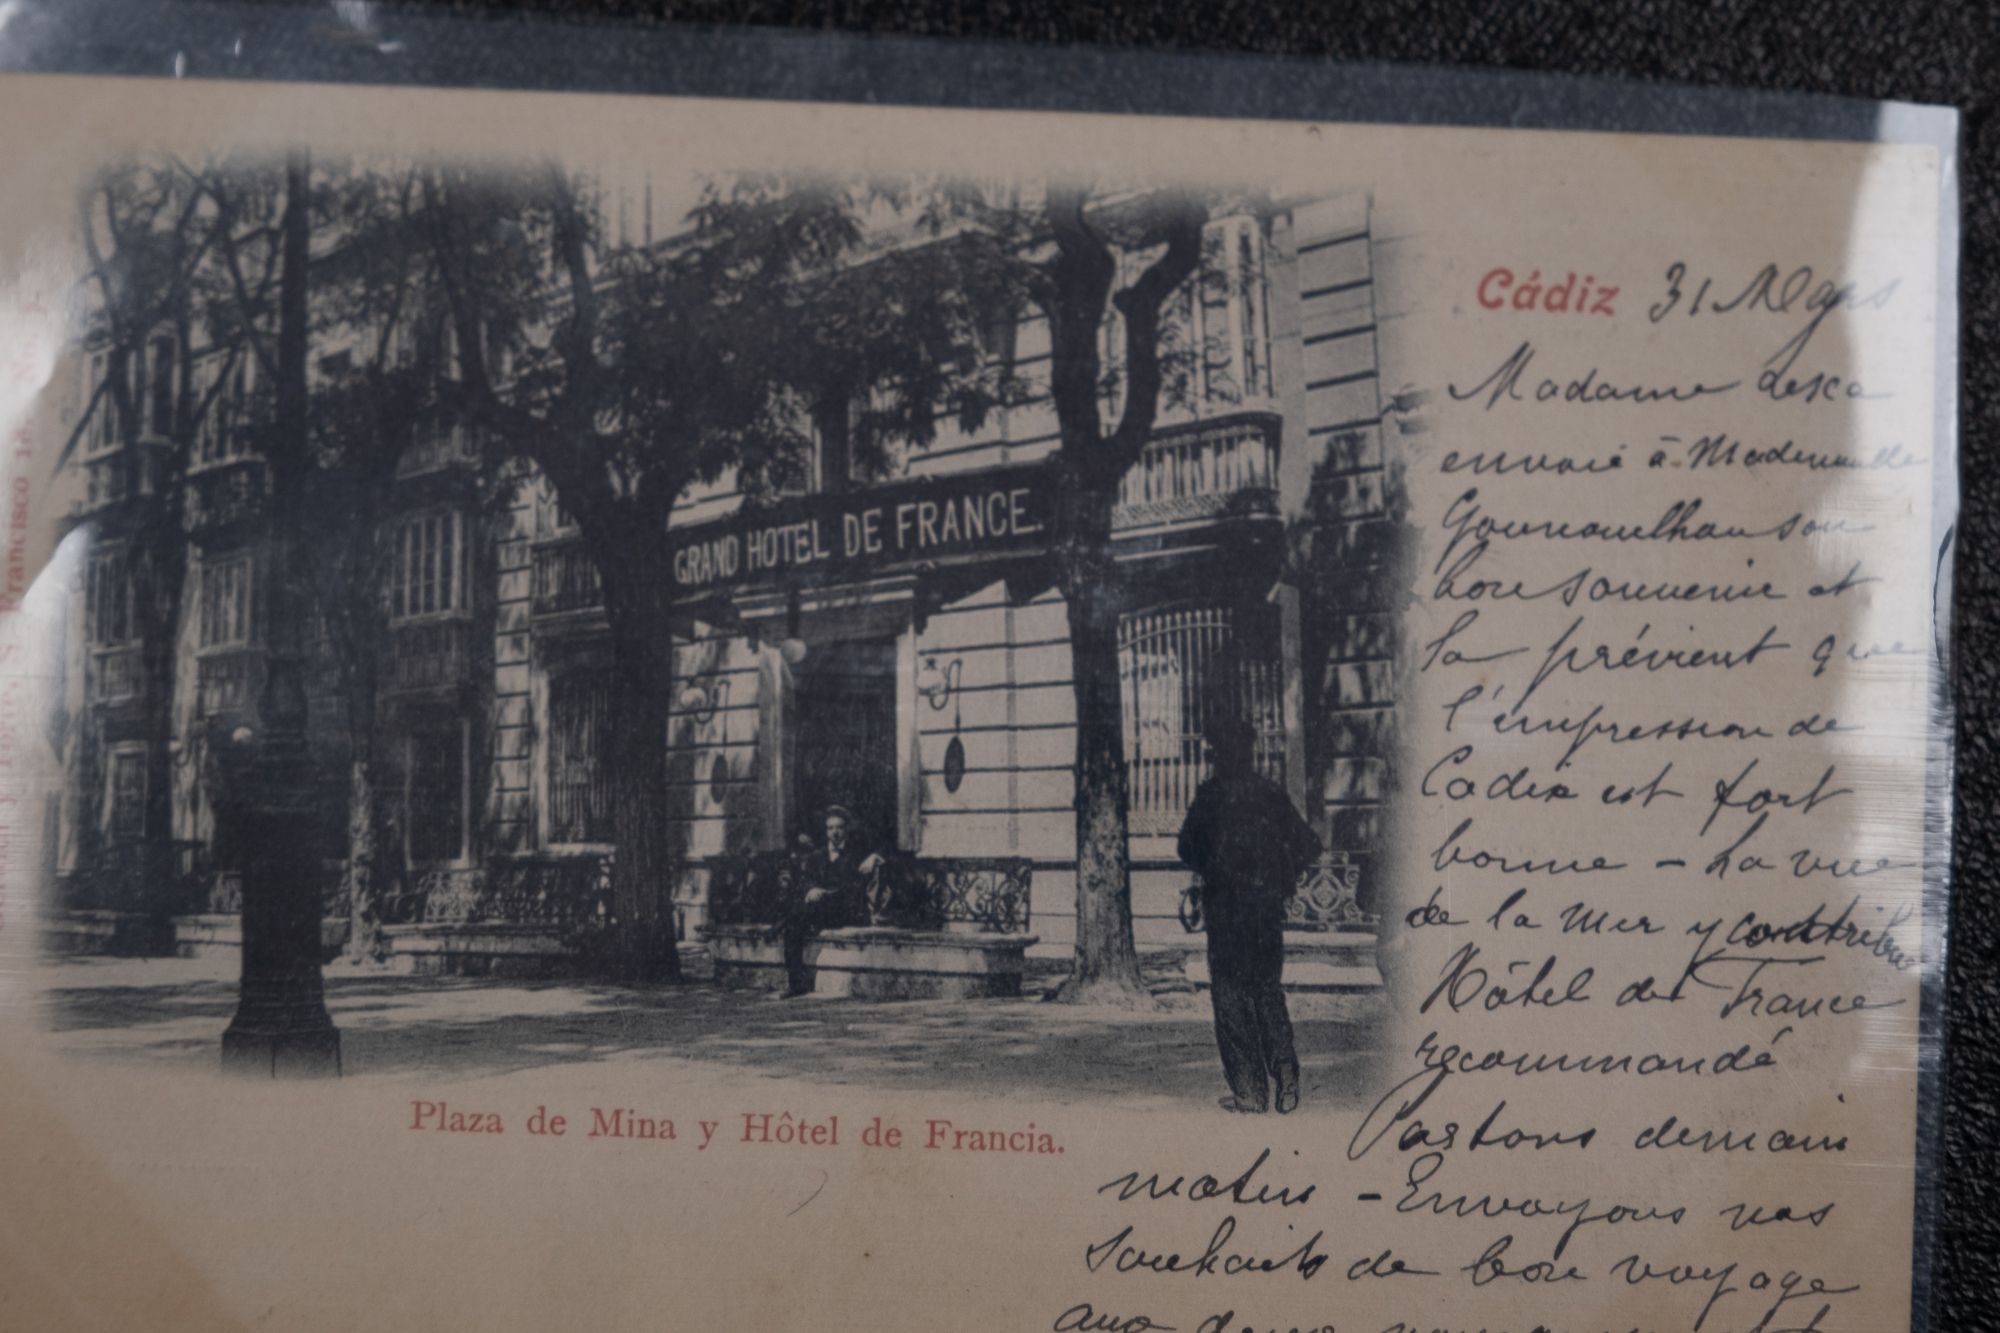 GRAND HOTEL DE FRANCE.
Plaza de Mina y Hôtel de Francia.
Francisco 18.
Cádiz 31 Mars
Madame
envoie à Mademoiselle
son
bon souvenir et
la prévient que
l'impression de
Cadix est fort
bonne – La vue
de la mer y contribue
Hôtel de France
recommandé
Partons demain
matin – Envoyons nos
souhaits de bon voyage
aux